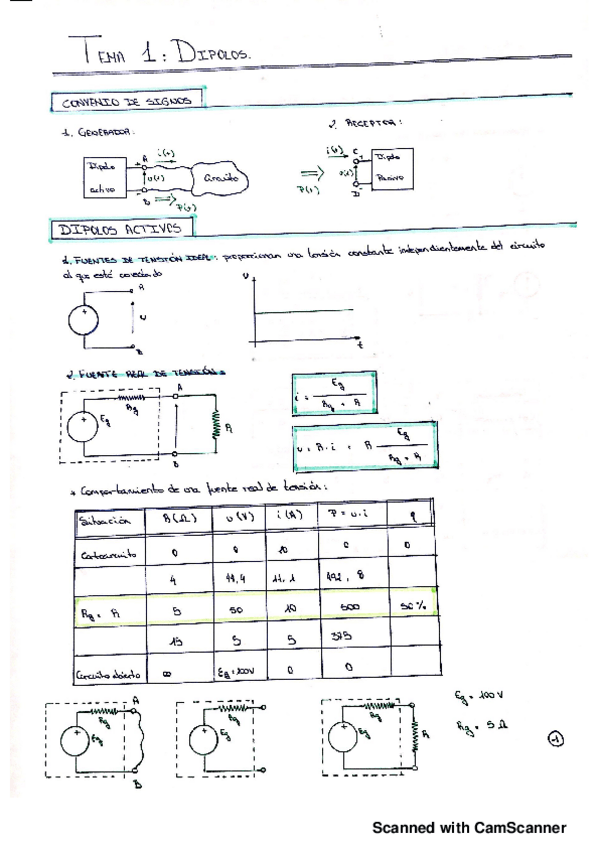 TEMA 1: DIPOLOS.
CONVENIO DE SIGNOS
1. GENERADOR:
2. RECEPTOR:
Dipolo activo
+ A
i(t)
u(t)
- B
P(t)
Circuito
P(t)
i(t) C
+
u(t)
- D
Dipolo Pasivo
DIPOLOS ACTIVOS
1. FUENTES DE TENSIÓN IDEAL: proporcionan una tensión constante independientemente del circuito
al que está conectado
A
+
u
B
u
t
2. FUENTE REAL DE TENSIÓN:
A
Rg
+ Eg
R
B
i = Eg / Rg + R
u = R · i = R Eg / Rg + R
* Comportamiento de una fuente real de tensión:
Situación R(Ω) u(V) i(A) P = u·i η
Cortocircuito 0 0 20 0 0
4 44,4 11,1 492,8
Rg = R 5 50 10 500 50%
15 5 5 375
Circuito abierto ∞ Eg=100V 0 0
Rg A
+ Eg
B
Rg
+ Eg
Rg
+ Eg
R
Eg = 100 V
Rg = 5 Ω
1
Scanned with CamScanner